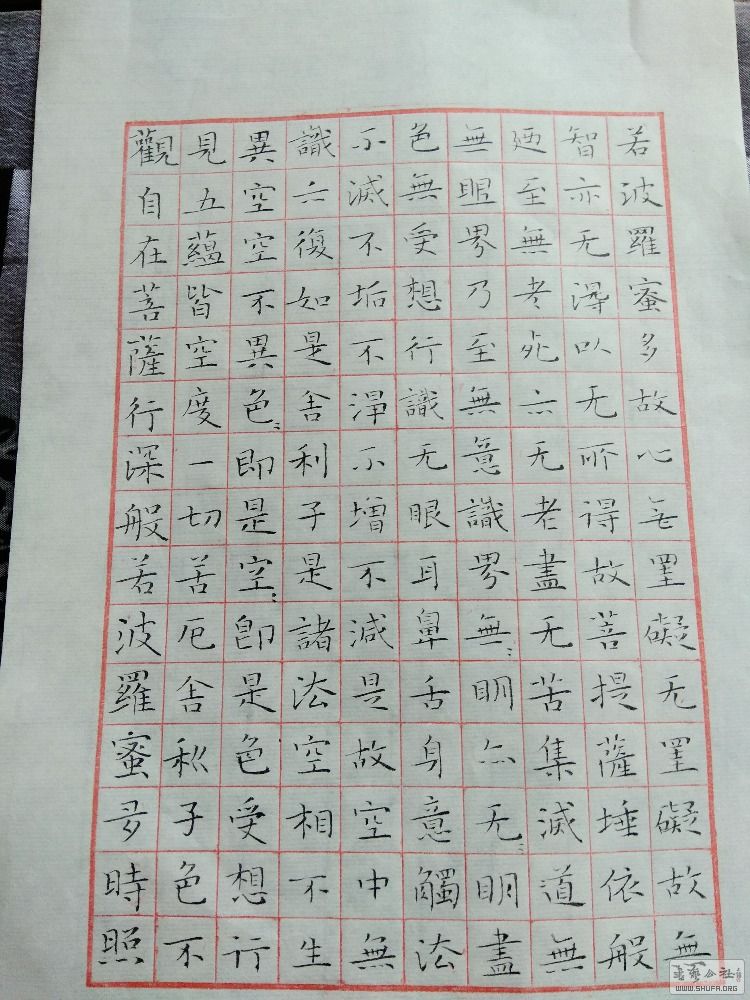 觀自在菩薩行深般若波羅蜜多時照
見五蘊皆空度一切苦厄舍利子色不
異空空不異色〻即是空〻即是色受想行
識亦復如是舍利子是諸法空相不生
不滅不垢不淨不增不減是故空中無
色無受想行識无眼耳鼻舌身意觸法
無眼界乃至無意識界無〻明亦无〻明盡
廼至無老死亦无老盡无苦集滅道無
智亦无得以无所得故菩提薩埵依般
若波羅蜜多故心無罣礙无罣礙故無
書藝公社
WWW.SHUFA.ORG